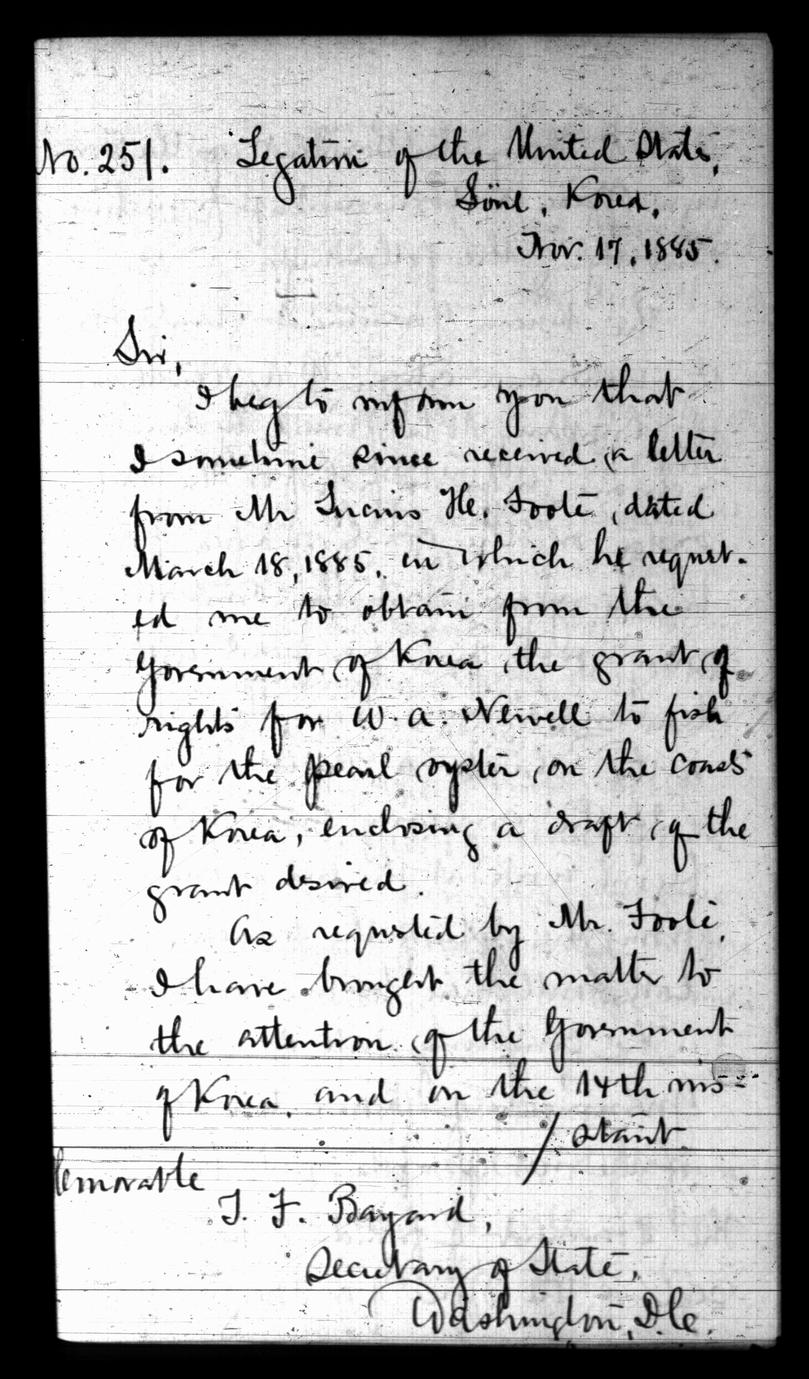 No. 251. Legation of the United States,
Söul, Korea,
Nov. 17, 1885.
Sir,
I beg to inform you that
I sometime since received a letter
from Mr Lucius H. Foote, dated
March 18, 1885, in which he request-
ed me to obtain from the
Government of Korea the grant of
rights for W. A. Newell to fish
for the pearl oyster, on the coasts
of Korea, enclosing a draft of the
grant desired.
As requested by Mr. Foote,
I have brought the matter to
the attention of the Government
of Korea, and on the 14th ins-
/ stant
Honorable
T. F. Bayard,
Secretary of State,
Washington, D.C.